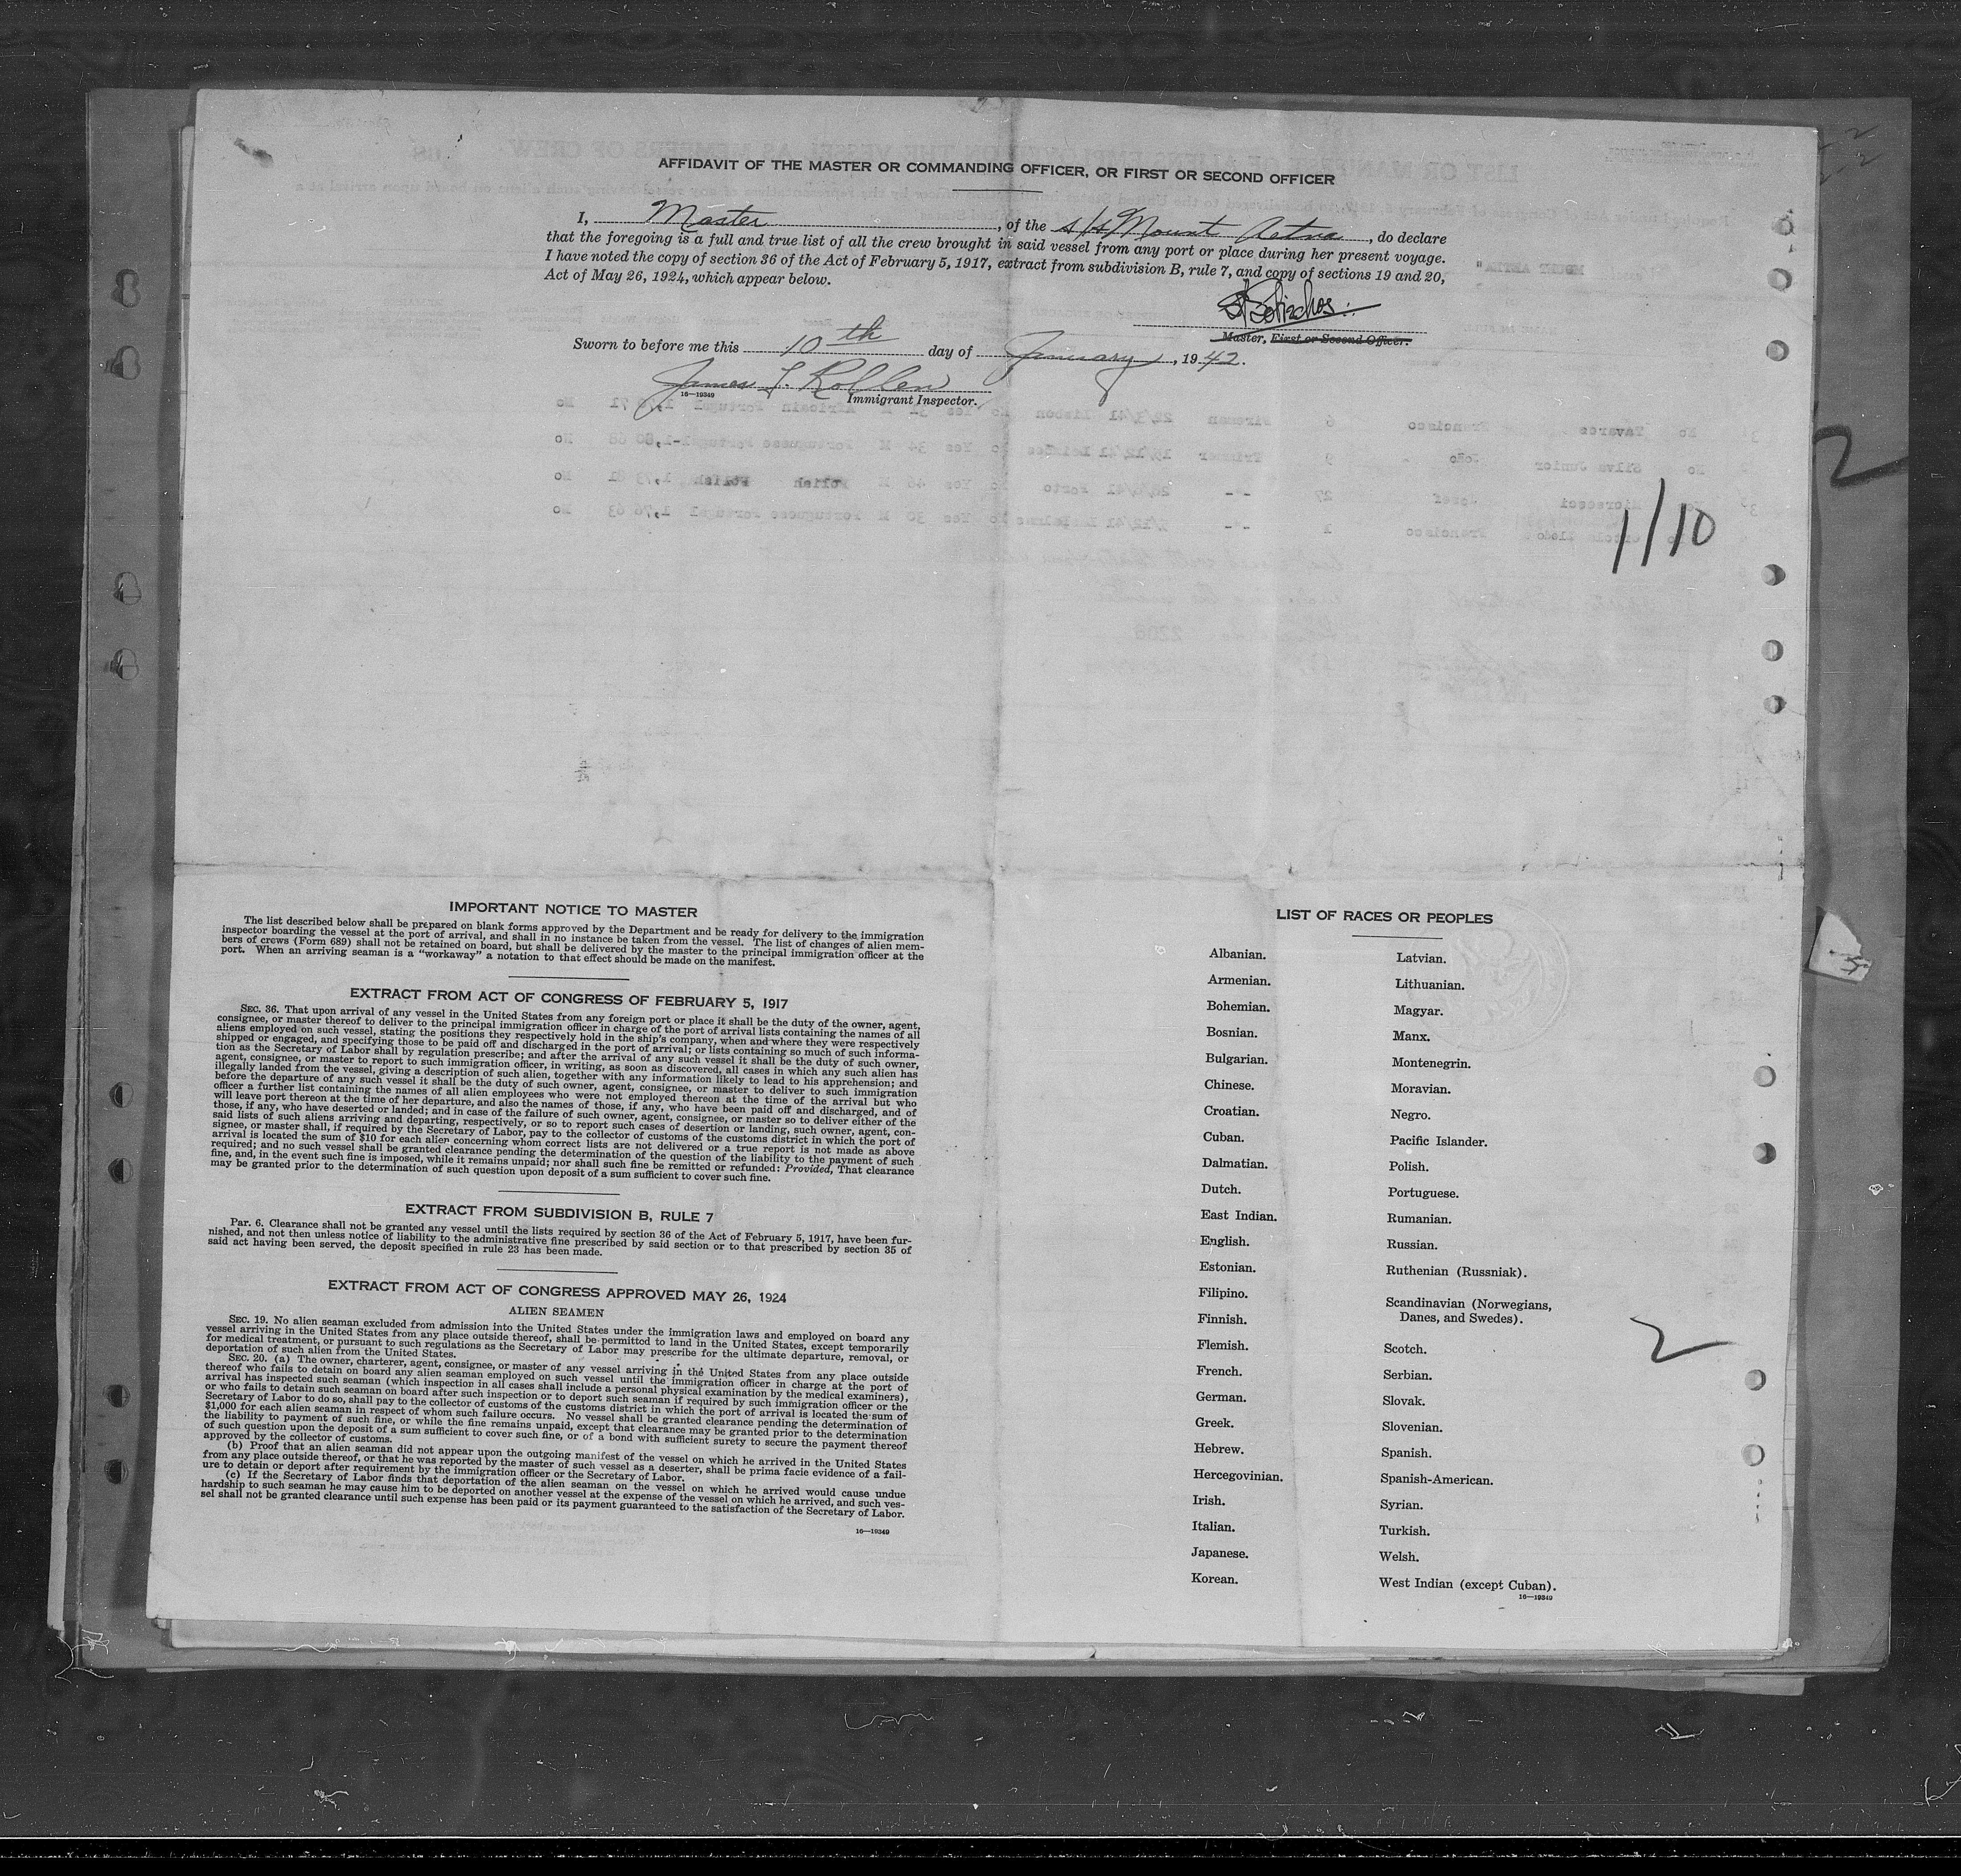 AFFIDAVIT OF THE MASTER OR COMMANDING OFFICER, OR FIRST OR SECOND OFFICER
I, Master, of the s/s Mount Aetna, do declare
that the foregoing is a full and true list of all the crew brought in said vessel from any port or place during her present voyage.
I have noted the copy of section 36 of the Act of February 5, 1917, extract from subdivision B, rule 7, and copy of sections 19 and 20,
Act of May 26, 1924, which appear below.
Master, First or Second Officer.
Sworn to before me this 10th day of January, 1942.
James
16—19349
Immigrant Inspector.
2
1/10
IMPORTANT NOTICE TO MASTER
The list described below shall be prepared on blank forms approved by the Department and be ready for delivery to the immigration
inspector boarding the vessel at the port of arrival, and shall in no instance be taken from the vessel. The list of changes of alien mem-
bers of crews (Form 689) shall not be retained on board, but shall be delivered by the master to the principal immigration officer at the
port. When an arriving seaman is a "workaway" a notation to that effect should be made on the manifest.
EXTRACT FROM ACT OF CONGRESS OF FEBRUARY 5, 1917
SEC. 36. That upon arrival of any vessel in the United States from any foreign port or place it shall be the duty of the owner, agent,
consignee, or master thereof to deliver to the principal immigration officer in charge of the port of arrival lists containing the names of all
aliens employed on such vessel, stating the positions they respectively hold in the ship's company, when and where they were respectively
shipped or engaged, and specifying those to be paid off and discharged in the port of arrival; or lists containing so much of such informa-
tion as the Secretary of Labor shall by regulation prescribe; and after the arrival of any such vessel it shall be the duty of such owner,
agent, consignee, or master to report to such immigration officer, in writing, as soon as discovered, all cases in which any such alien has
illegally landed from the vessel, giving a description of such alien, together with any information likely to lead to his apprehension; and
before the departure of any such vessel it shall be the duty of such owner, agent, consignee, or master to deliver to such immigration
officer a further list containing the names of all alien employees who were not employed thereon at the time of the arrival but who
will leave port thereon at the time of her departure, and also the names of those, if any, who have been paid off and discharged, and of
those, if any, who have deserted or landed; and in case of the failure of such owner, agent, consignee, or master so to deliver either of the
said lists of such aliens arriving and departing, respectively, or so to report such cases of desertion or landing, such owner, agent, con-
signee, or master shall, if required by the Secretary of Labor, pay to the collector of customs of the customs district in which the port of
arrival is located the sum of $10 for each alien concerning whom correct lists are not delivered or a true report is not made as above
required; and no such vessel shall be granted clearance pending the determination of the question of the liability to the payment of such
fine, and, in the event such fine is imposed, while it remains unpaid; nor shall such fine be remitted or refunded: Provided, That clearance
may be granted prior to the determination of such question upon deposit of a sum sufficient to cover such fine.
EXTRACT FROM SUBDIVISION B, RULE 7
Par. 6. Clearance shall not be granted any vessel until the lists required by section 36 of the Act of February 5, 1917, have been fur-
nished, and not then unless notice of liability to the administrative fine prescribed by said section or to that prescribed by section 35 of
said act having been served, the deposit specified in rule 23 has been made.
EXTRACT FROM ACT OF CONGRESS APPROVED MAY 26, 1924
ALIEN SEAMEN
SEC. 19. No alien seaman excluded from admission into the United States under the immigration laws and employed on board any
vessel arriving in the United States from any place outside thereof, shall be permitted to land in the United States, except temporarily
for medical treatment, or pursuant to such regulations as the Secretary of Labor may prescribe for the ultimate departure, removal, or
deportation of such alien from the United States.
SEC. 20. (a) The owner, charterer, agent, consignee, or master of any vessel arriving in the United States from any place outside
thereof who fails to detain on board any alien seaman employed on such vessel until the immigration officer in charge at the port of
arrival has inspected such seaman (which inspection in all cases shall include a personal physical examination by the medical examiners),
or who fails to detain such seaman on board after such inspection or to deport such seaman if required by such immigration officer or the
Secretary of Labor to do so, shall pay to the collector of customs of the customs district in which the port of arrival is located the sum of
$1,000 for each alien seaman in respect of whom such failure occurs. No vessel shall be granted clearance pending the determination of
the liability to payment of such fine, or while the fine remains unpaid, except that clearance may be granted prior to the determination
of such question upon the deposit of a sum sufficient to cover such fine, or of a bond with sufficient surety to secure the payment thereof
approved by the collector of customs.
(b) Proof that an alien seaman did not appear upon the outgoing manifest of the vessel on which he arrived in the United States
from any place outside thereof, or that he was reported by the master of such vessel as a deserter, shall be prima facie evidence of a fail-
ure to detain or deport after requirement by the immigration officer or the Secretary of Labor.
(c) If the Secretary of Labor finds that deportation of the alien seaman on the vessel on which he arrived would cause undue
hardship to such seaman he may cause him to be deported on another vessel at the expense of the vessel on which he arrived, and such ves-
sel shall not be granted clearance until such expense has been paid or its payment guaranteed to the satisfaction of the Secretary of Labor.
16—19349
LIST OF RACES OR PEOPLES
Albanian.
Armenian.
Bohemian.
Bosnian.
Bulgarian.
Chinese.
Croatian.
Cuban.
Dalmatian.
Dutch.
East Indian.
English.
Estonian.
Filipino.
Finnish.
Flemish.
French.
German.
Greek.
Hebrew.
Hercegovinian.
Irish.
Italian.
Japanese.
Korean.
Latvian.
Lithuanian.
Magyar.
Manx.
Montenegrin.
Moravian.
Negro.
Pacific Islander.
Polish.
Portuguese.
Rumanian.
Russian.
Ruthenian (Russniak).
Scandinavian (Norwegians,
Danes, and Swedes).
Scotch.
Serbian.
Slovak.
Slovenian.
Spanish.
Spanish-American.
Syrian.
Turkish.
Welsh.
West Indian (except Cuban).
16—19349
2